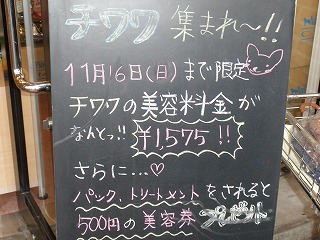 チワワ 集まれ〜!!
11月16日(日)まで限定
チワワの美容料金が
なんとっ!! ¥1,575 !!
さらに…♡
パック、トリートメントをされると
500円の美容券プレゼント